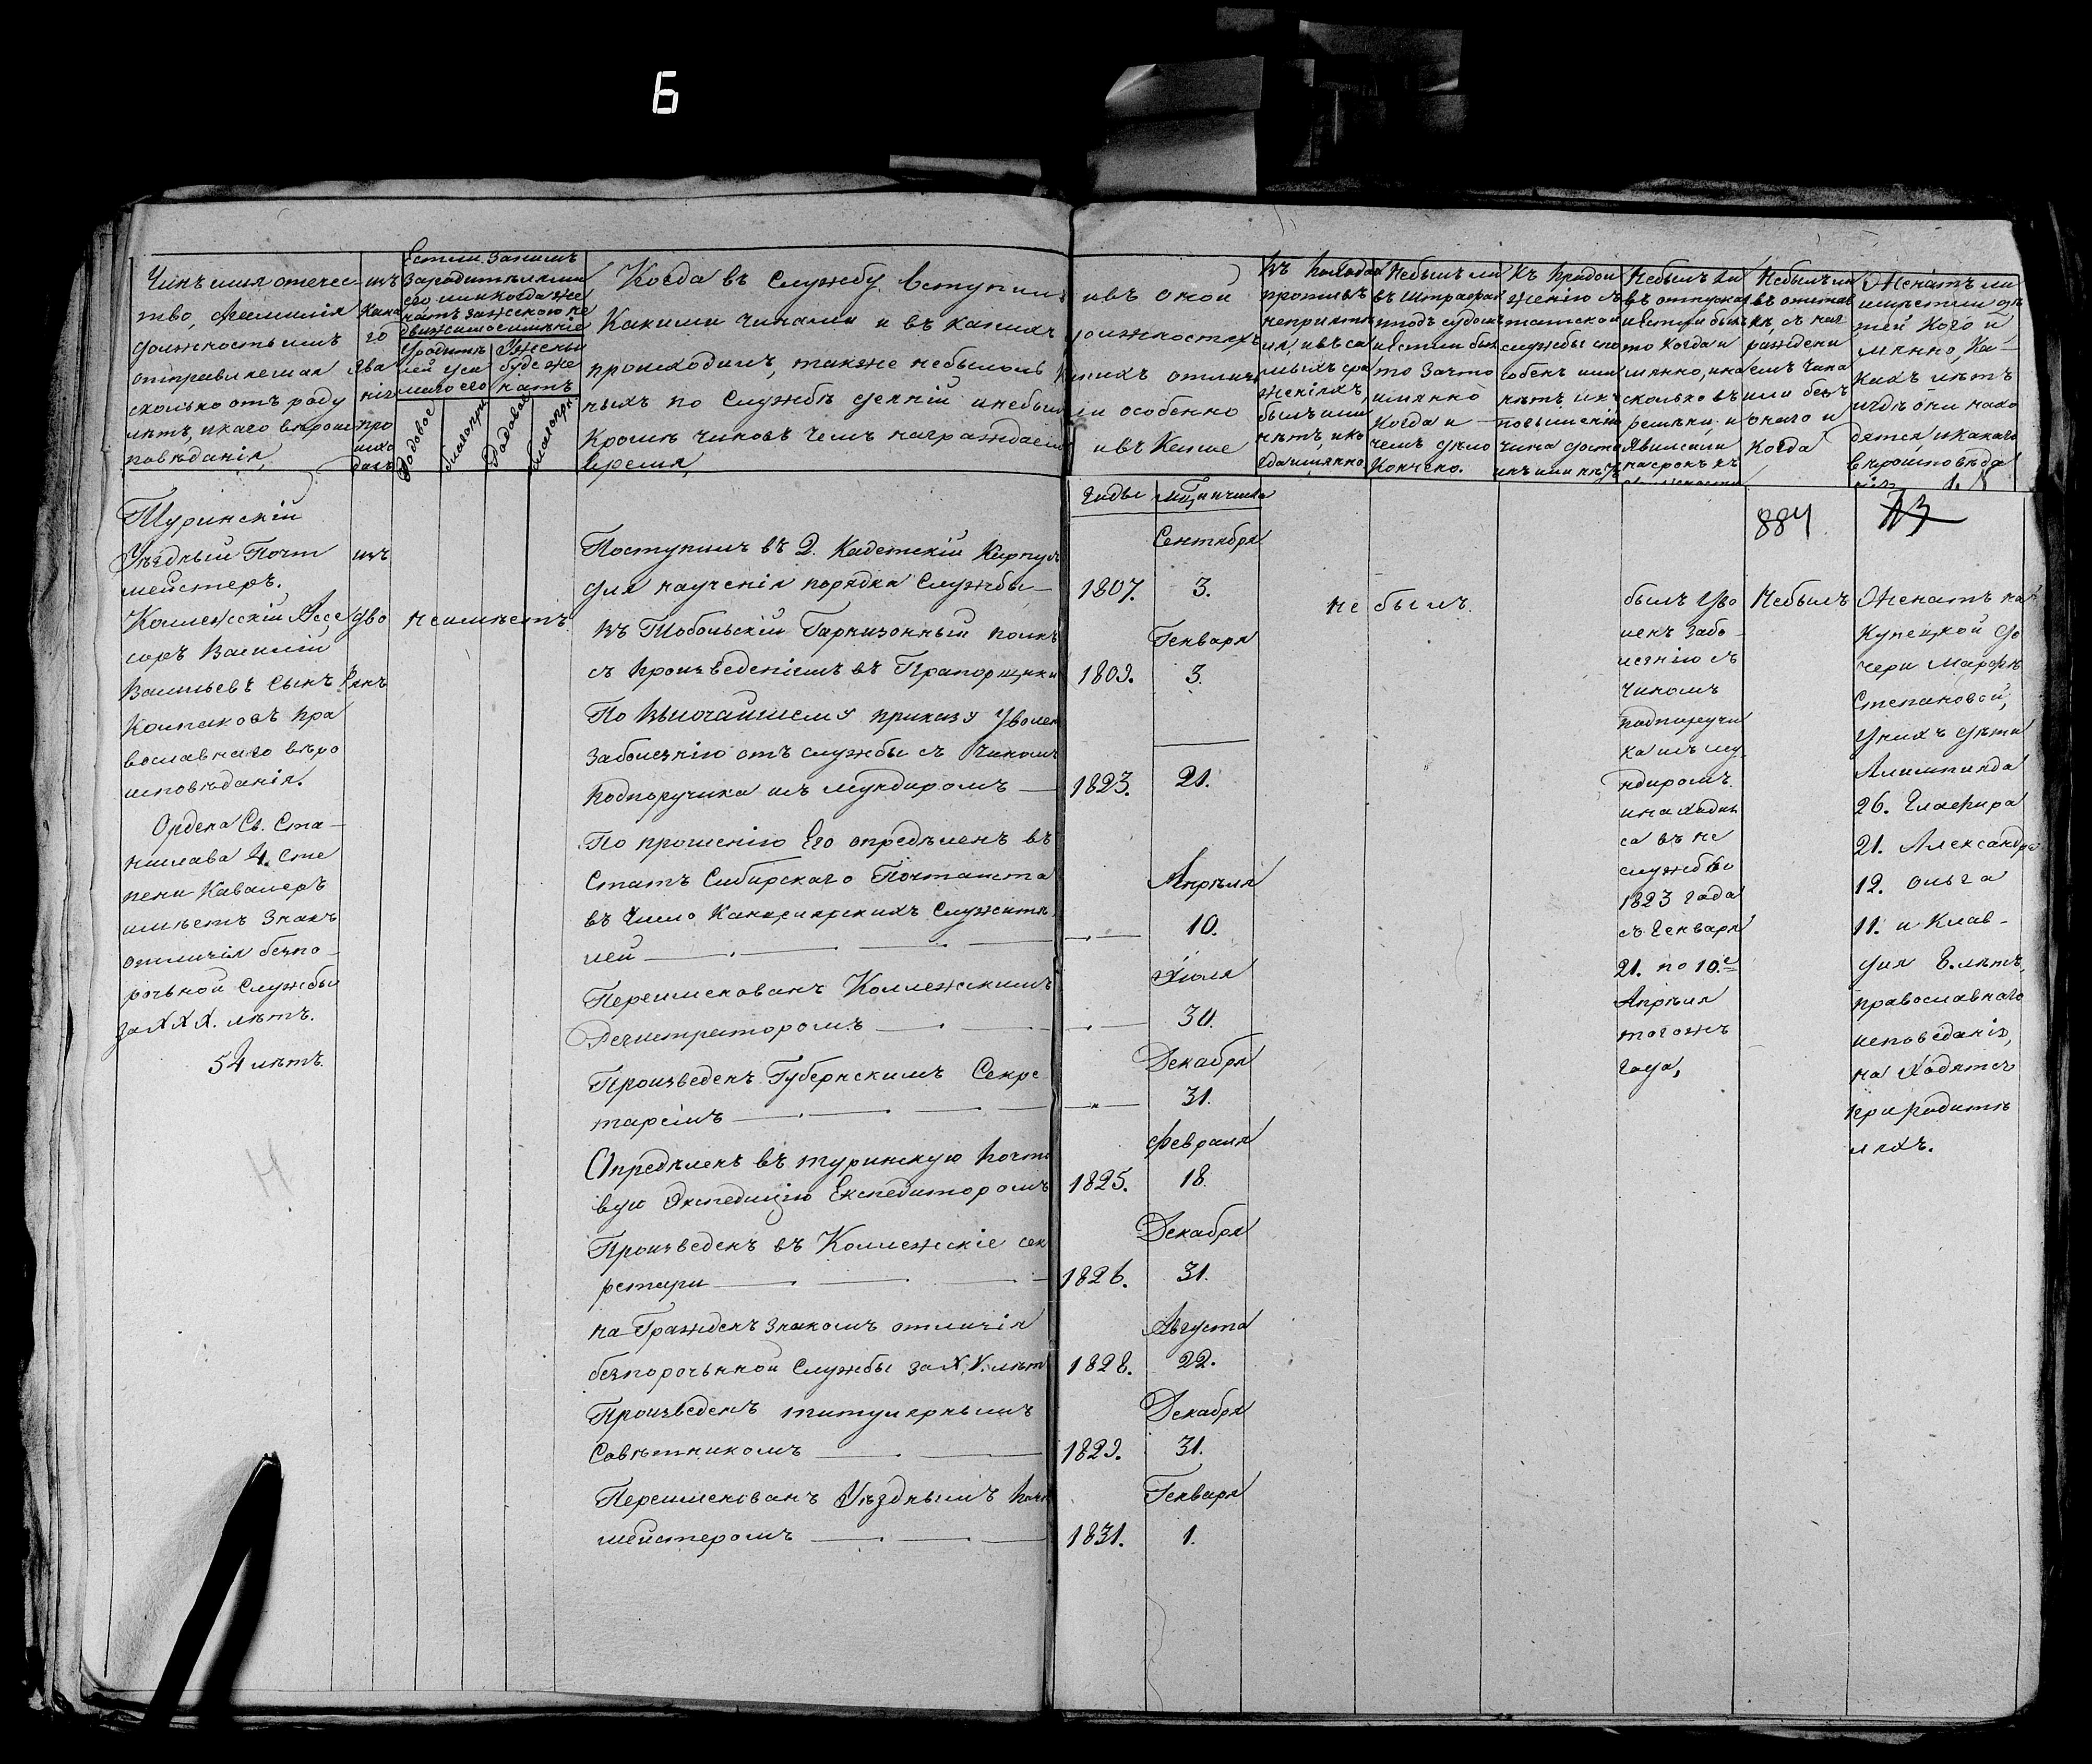 Б
Чинъ имя отечес-
тво, фамилія
должность имъ
отправляемая
сколько отъ роду
лѣтъ, и каго вѣроис
повѣданія,
изъ
кака
го
зва
нія
про
исхо
дитъ
Естли за нимъ
за родителями
его или когда же
натъ за женою не
движимое имѣніе
У родите
лей у са
маго его
У жены
буде же
натъ
Родовое
благопрі
Родовое
благопрі
Когда въ службу вступилъ
Какими чинами и въ какихъ
происходилъ, также небылолъ к
ныхъ по службѣ деяній и небылъ
Кроме чиновъ чемъ награждаемъ
время,
и въ оной
должностяхъ
акихъ отлич
ли особенно
и въ Какие
Въ походахъ
противъ
неприяте
ля, и въ са
мыхъ сра
женіяхъ,
былъ или
нѣтъ, и ко
гда имянно
Небылъ ли
въ штрафахъ
подъ судомъ
и естли былъ
то за что
имянно
когда и
чемъ дѣло
Кончено.
Къ продол
женію с
татской
службы спо
собенъ или
нѣтъ и къ
повышенію
чина досто
инъ или нѣтъ
Небылъ ли
въ отпускахъ
и естли былъ
то когда и
мянно, и на
сколько вр
ремени и
явился ли
на срокъ къ
Небылъ ли
въ отстав
кѣ, съ наг
ражденi
емъ чина
или безъ
онаго и
Когда
Женатъ ли
имѣетъ ли дѣ
тей Кого и
мянно, Ка-
кихъ лѣтъ
и гдѣ они нахо
дятся и какаго
вѣроисповѣда
нія
Годы
мцы и числа
884
13
Туринскій
Уѣздный Почт
мейстеръ.
Коллежскій Ассе
соръ Василій
Васильевъ сынъ
Колпаковъ пра
вославнаго вѣро
исповѣданія.
Ордена Св. Ста-
нислава 4. сте
пени Кавалеръ
имѣетъ знакъ
отличія безпо-
рочьной службы
за XXX. лѣтъ.
54 лѣтъ.
изъ
дво
рянъ
неимѣетъ
Поступилъ въ 2. Кадетскій Корпусъ
для научения порядка службы —
Сентября
1807. 3.
Въ Тобольскій Гарнизонный полкъ
съ произведеніемъ въ Прапорщики
Генваря
1809. 3.
По Высочайшему приказу уволенъ
за болезнію отъ службы съ чиномъ
подпоручика и съ мундиромъ —
1823. 21.
По прошенію Его опредѣленъ въ
Статъ Сибирскаго Почтамта
въ число Канцелярскихъ служите
лей —
Апрѣля
10.
Переименованъ Коллежскимъ
Регистраторомъ —
Іюля
30.
Произведенъ Губернскимъ Секре
таремъ —
Декабря
31.
Опредѣленъ въ туринскую почто
вую Экспедицію Експедиторомъ
Февраля
1825. 18.
Произведенъ въ Коллежскіе сек
ретари —
Декабря
1826. 31.
На Гражденъ знакомъ отличія
безпорочьнной службы за X.V. лѣт
Августа
1828. 22.
Произведенъ титулярнымъ
Совѣтникомъ —
Декабря
1829. 31.
Переименованъ Уѣзднымъ почт
мейстеромъ —
Генваря
1831. 1.
не былъ.
былъ Уво
ленъ за бо-
лезнію съ
чиномъ
подпоручи
ка и съ му
ндиромъ.
и находил
ся въ не
службѣ
1823 года
съ Генваря
21. по 10.е
Апрѣля
тогожъ
года,
Небылъ
Женатъ на
Купецкой до
чери Марфѣ
Степановой,
у нихъ дѣти
Алимпиада
26. Глафира
21. Александра
12. Ольга
11. и Клав-
дия 8. лѣтъ,
православнаго
исповеданія,
на Ходятся
при родите
ляхъ.